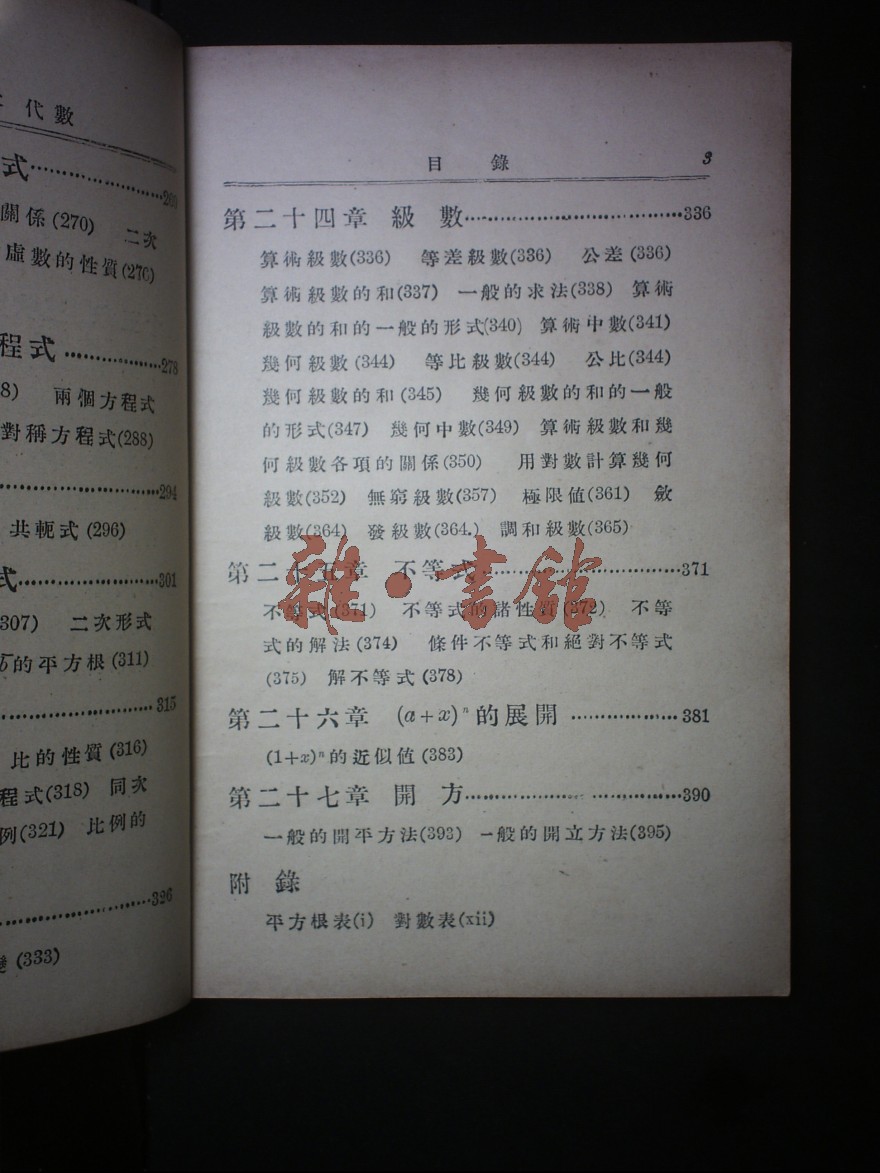 代數
式……………269
關係(270) 二次
虛數的性質(270)
程式……………278
8) 兩個方程式
對稱方程式(288)
……………294
共軛式(296)
式……………301
307) 二次形式
的平方根(311)
……………315
比的性質(316)
程式(318) 同次
例(321) 比例的
……………326
(333)
目 錄 3
第二十四章 級 數……………336
算術級數(336) 等差級數(336) 公差(336)
算術級數的和(337) 一般的求法(338) 算術
級數的和的一般的形式(340) 算術中數(341)
幾何級數(344) 等比級數(344) 公比(344)
幾何級數的和(345) 幾何級數的和的一般
的形式(347) 幾何中數(349) 算術級數和幾
何級數各項的關係(350) 用對數計算幾何
級數(352) 無窮級數(357) 極限值(361) 斂
級數(364) 發級數(364.) 調和級數(365)
第二十五章 不等式……………371
不等式(371) 不等式的諸性質(272) 不等
式的解法(374) 條件不等式和絕對不等式
(375) 解不等式(378)
第二十六章 (a+x)ⁿ的展開……………381
(1+x)ⁿ的近似值(383)
第二十七章 開 方……………390
一般的開平方法(393) 一般的開立方法(395)
附 錄
平方根表(i) 對數表(xii)
雜·書館